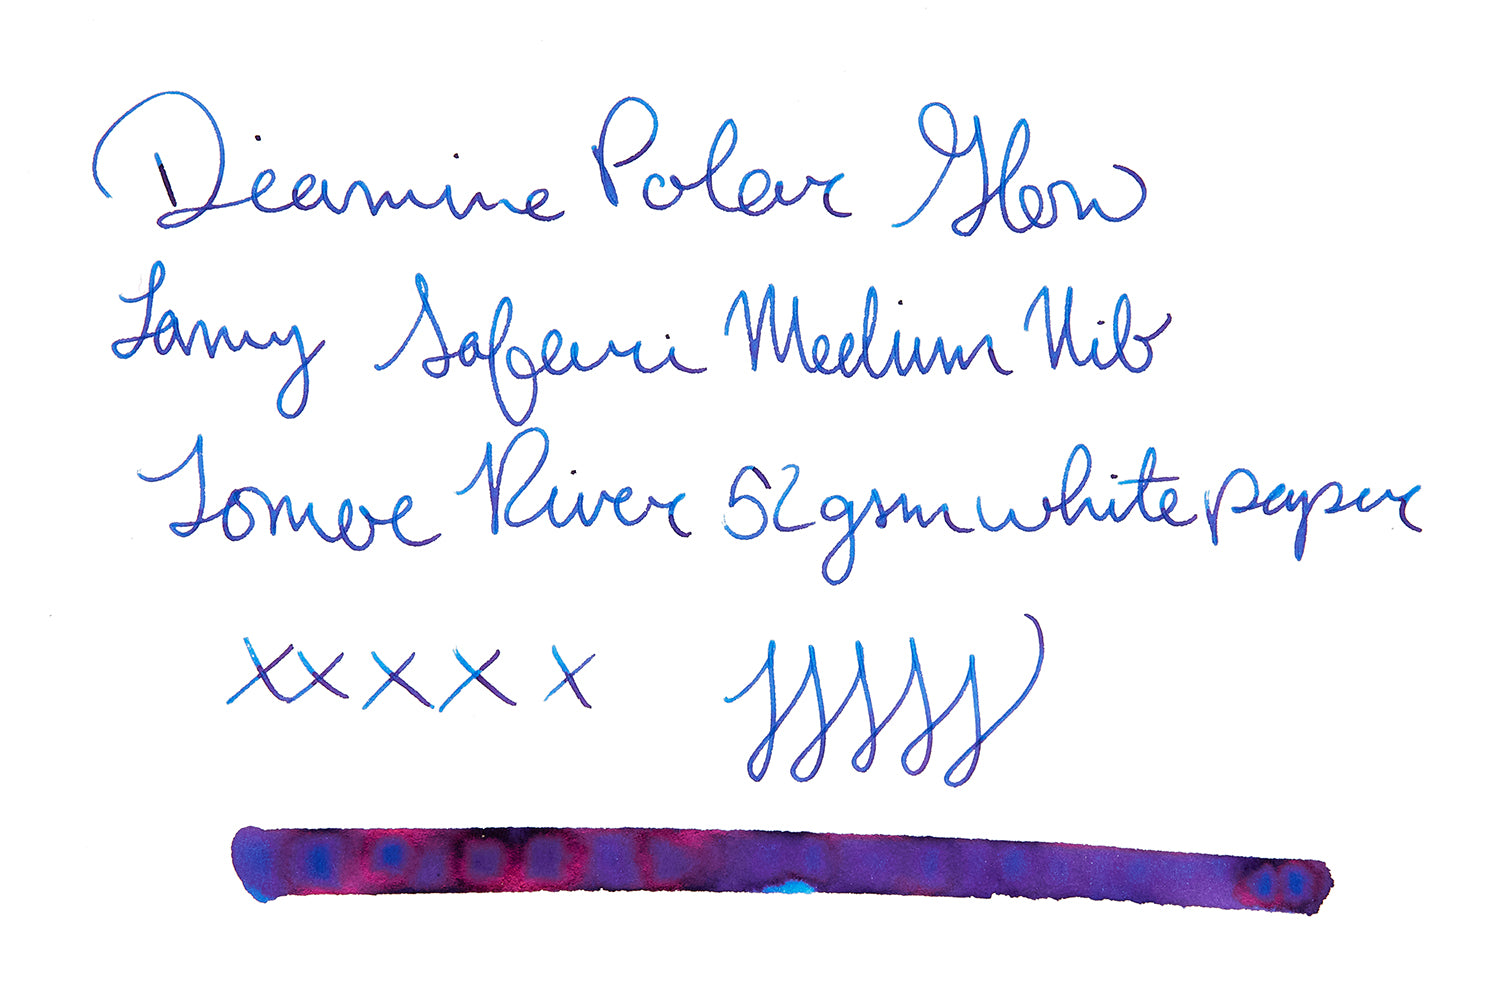 Diamine Polar Glow
Lamy Safari Medium Nib
Tomoe River 52gsm white paper
xxxxx